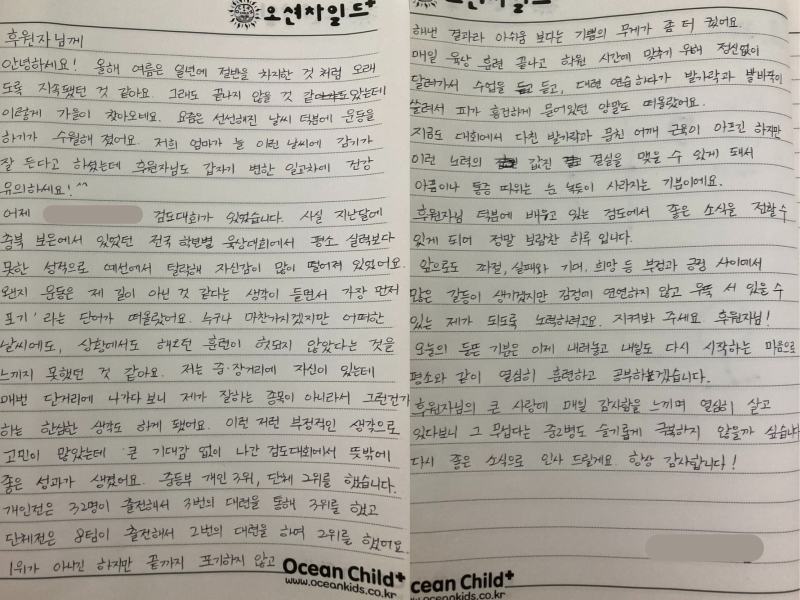 오션차일드+
후원자님께
안녕하세요! 올해 여름은 일년에 절반을 차지한 것 처럼 오래
도록 지속됐던 것 같아요. 그래도 끝나지 않을 것 같았는데
이렇게 가을이 찾아오네요. 요즘은 선선해진 날씨 덕분에 운동을
하기가 수월해 졌어요. 저희 엄마가 늘 이런 날씨에 감기가
잘 든다고 하셨는데 후원자님도 갑자기 변한 일교차에 건강
유의하세요! ^^
어제 검도대회가 있었습니다. 사실 지난달에
충북 보은에서 있었던 전국 학년별 육상대회에서 평소 실력보다
못한 성적으로 예선에서 탈락해 자신감이 많이 떨어져 있었어요.
왠지 운동은 제 길이 아닌 것 같다는 생각이 들면서 가장 먼저
'포기'라는 단어가 떠올랐어요. 누구나 마찬가지겠지만 어떠한
날씨에도, 상황에서도 해오던 훈련이 헛되지 않았다는 것을
느끼지 못했던 것 같아요. 저는 중·장거리에 자신이 있는데
매번 단거리에 나가다 보니 제가 잘하는 종목이 아니라서 그런건가
하는 한심한 생각도 하게 됐어요. 이런 저런 부정적인 생각으로
고민이 많았는데 큰 기대감 없이 나간 검도대회에서 뜻밖에
좋은 성과가 생겼어요. 중등부 개인 3위, 단체 2위를 했습니다.
개인전은 32명이 출전해서 3번의 대련을 통해 3위를 했고
단체전은 8팀이 출전해서 2번의 대련을 하여 2위를 했어요.
1위가 아니긴 하지만 끝까지 포기하지 않고
Ocean Child+
www.oceankids.co.kr
해낸 결과라 아쉬움 보다는 기쁨의 무게가 좀 더 컸어요.
매일 육상 훈련 끝나고 학원 시간에 맞추기 위해 정신없이
달려가서 수업을 듣고, 대련 연습하다가 발가락과 발바닥이
쓸려서 피가 흥건하게 묻어있던 양말도 떠올랐어요.
지금도 대회에서 다친 발가락과 뭉친 어깨 근육이 아프긴 하지만
이런 노력의 값진 결실을 맺을 수 있게 돼서
아픔이나 통증 따위는 눈 녹듯이 사라지는 기분이에요.
후원자님 덕분에 배우고 있는 검도에서 좋은 소식을 전할 수
있게 되어 정말 보람찬 하루 입니다.
앞으로도 좌절, 실패와 기대, 희망 등 부정과 긍정 사이에서
많은 갈등이 생기겠지만 감정에 연연하지 않고 우뚝 서 있을 수
있는 제가 되도록 노력하려고요. 지켜봐 주세요 후원자님!
오늘의 들뜬 기분은 이제 내려놓고 내일도 다시 시작하는 마음으로
평소와 같이 열심히 훈련하고 공부하겠습니다.
후원자님의 큰 사랑에 매일 감사함을 느끼며 열심히 살고
있다보니 그 무섭다는 중2병도 슬기롭게 극복하지 않을까 싶습니다
다시 좋은 소식으로 인사 드릴게요. 항상 감사합니다!
cean Child+
w.oceankids.co.kr